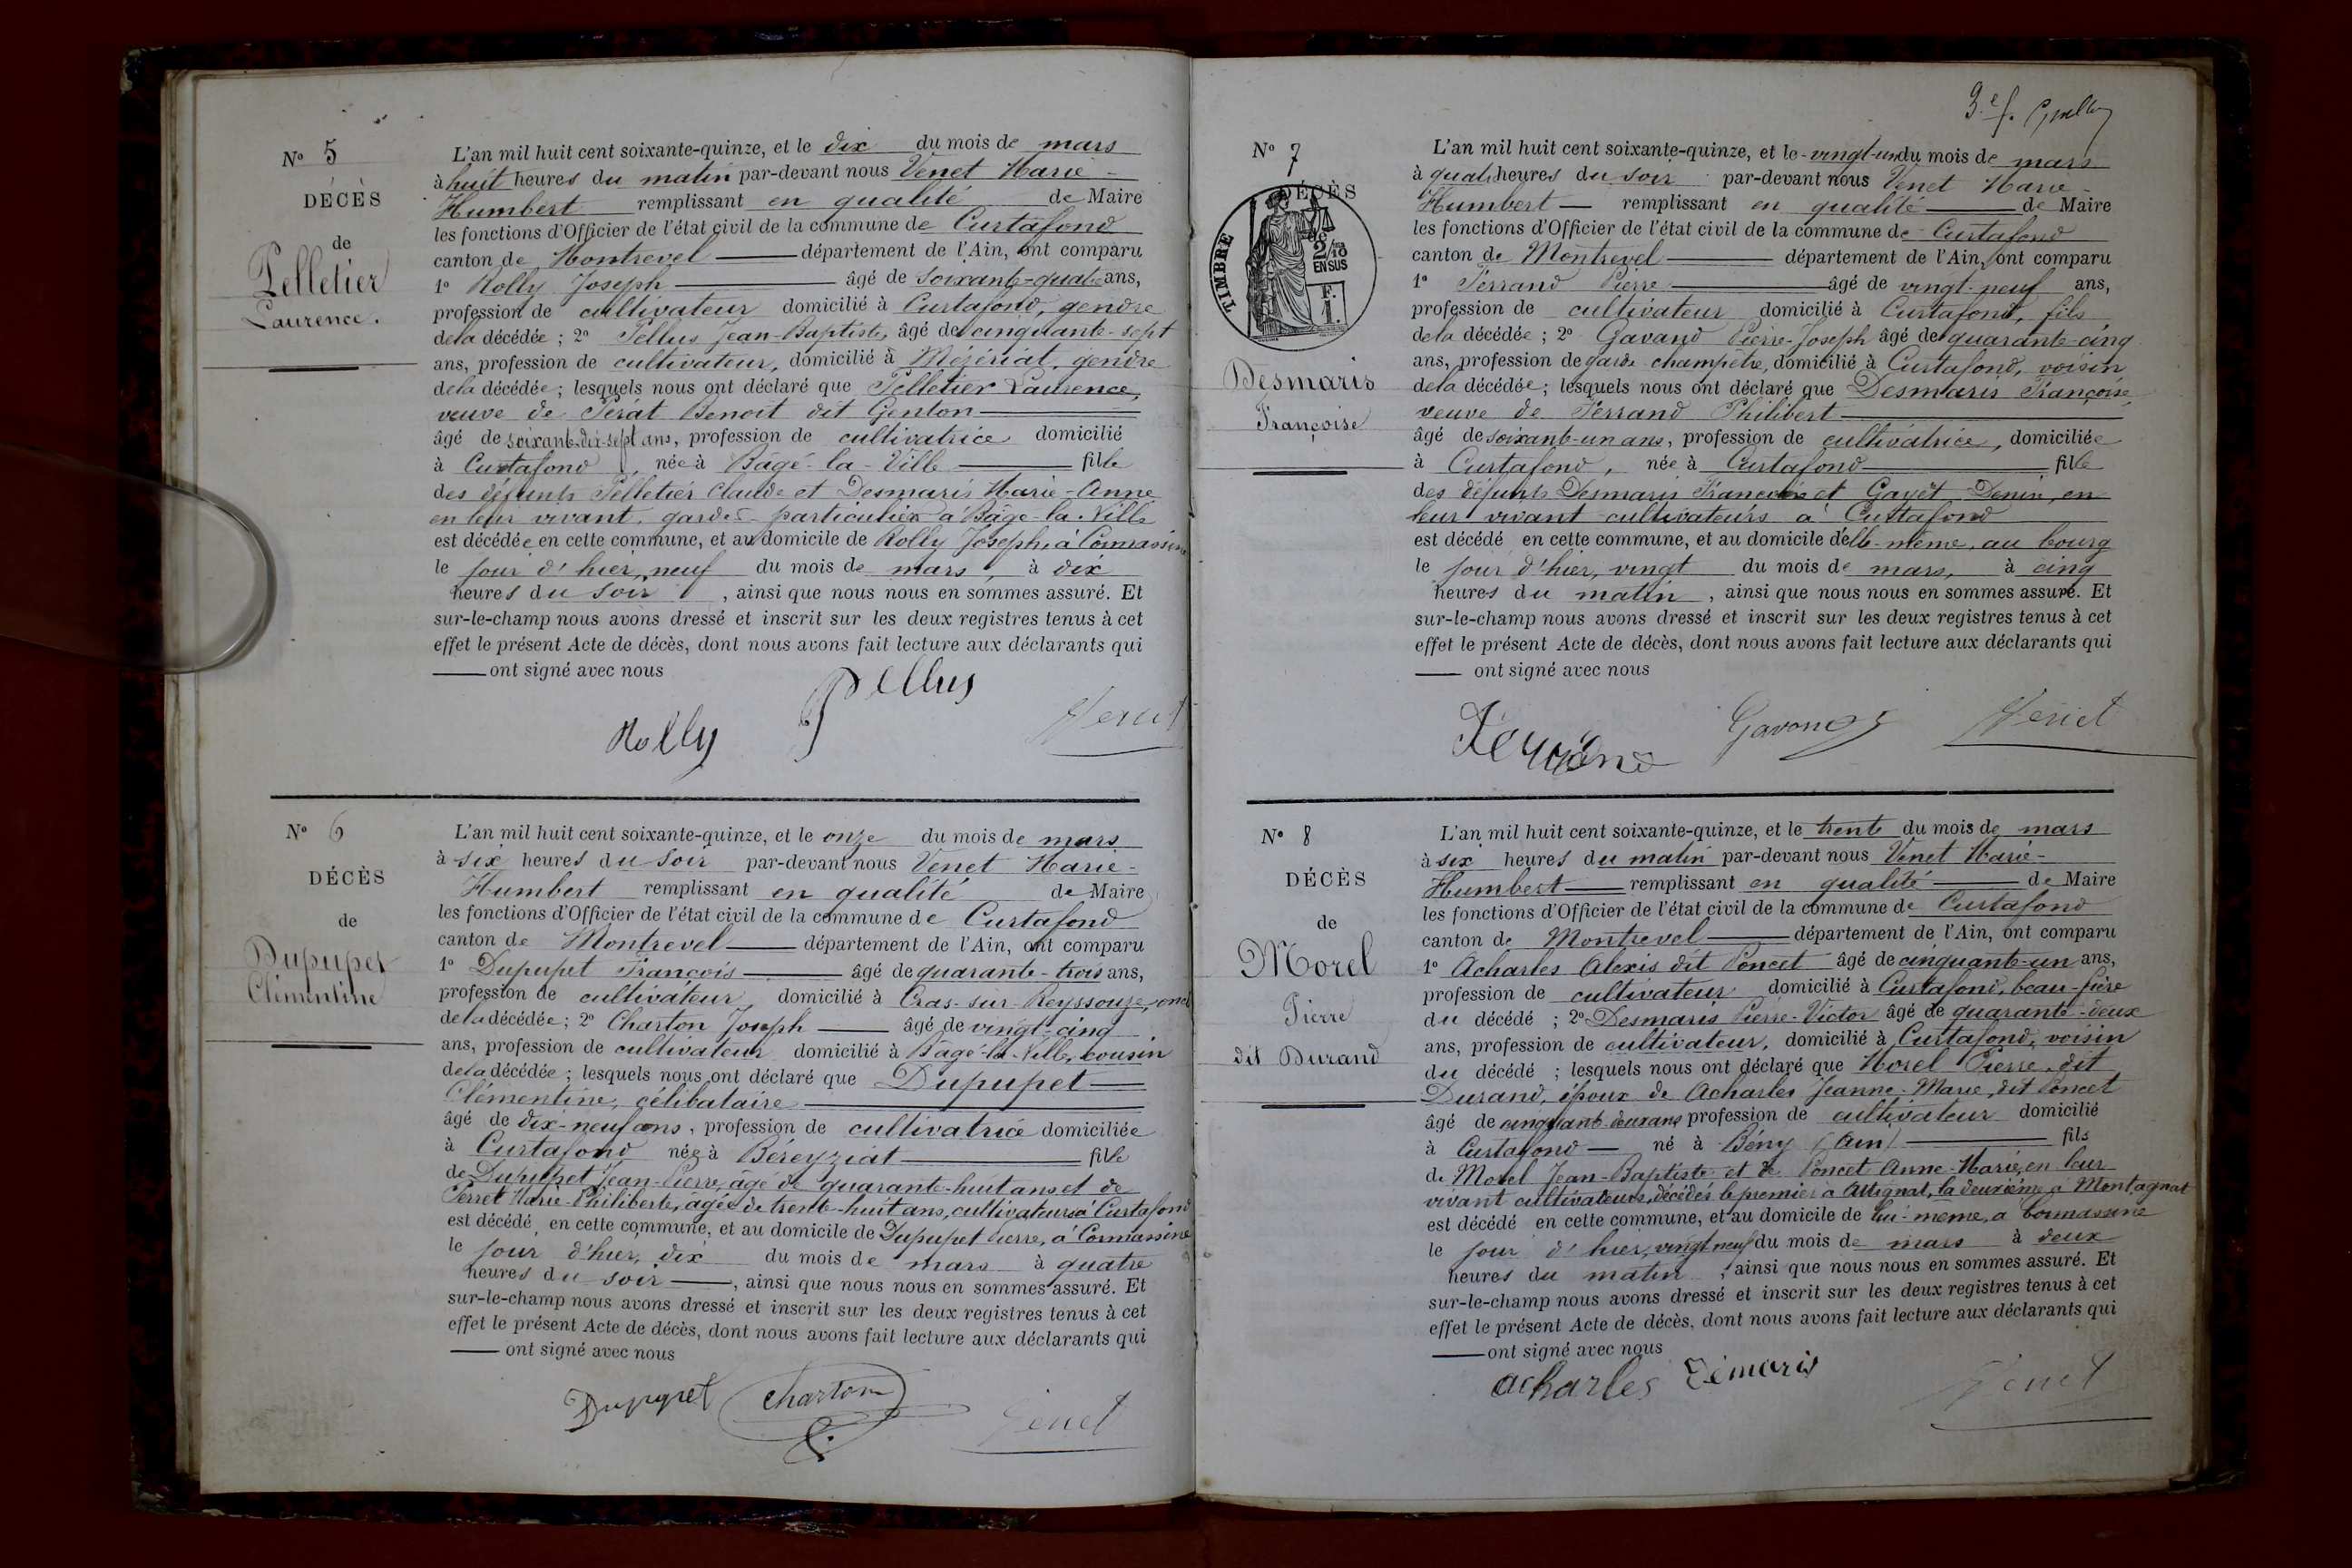 N° 5
DÉCÈS
de
Pelletier
Laurence.
L'an mil huit cent soixante-quinze, et le dix du mois de mars
à huit heures du matin par-devant nous Venet Marie-
Humbert remplissant en qualité de Maire
les fonctions d'Officier de l'état civil de la commune de Curtafond
canton de Montrevel département de l'Ain, ont comparu
1° Rolly Joseph âgé de soixante-quatre ans,
profession de cultivateur domicilié à Curtafond, gendre
de la décédée ; 2° Pellus Jean-Baptiste, âgé de cinquante-sept
ans, profession de cultivateur, domicilié à Mézériat, gendre
de la décédée ; lesquels nous ont déclaré que Pelletier Laurence,
veuve de Pérat Benoit dit Genton
âgé de soixante-dix-sept ans, profession de cultivatrice domicilié
à Curtafond, née à Bâgé-la-Ville fille
des défunts Pelletier Claude et Desmaris Marie-Anne
en leur vivant gardes-particuliers à Bâgé-la-Ville
est décédée en cette commune, et au domicile de Rolly Joseph, à Cormassine
le jour d'hier, neuf du mois de mars, à dix
heures du soir, ainsi que nous nous en sommes assuré. Et
sur-le-champ nous avons dressé et inscrit sur les deux registres tenus à cet
effet le présent Acte de décès, dont nous avons fait lecture aux déclarants qui
ont signé avec nous
Pellus
Rolly
Venet
N° 6
DÉCÈS
de
Dupupet
Clémentine
L'an mil huit cent soixante-quinze, et le onze du mois de mars
à six heures du soir par-devant nous Venet Marie-
Humbert remplissant en qualité de Maire
les fonctions d'Officier de l'état civil de la commune de Curtafond
canton de Montrevel département de l'Ain, ont comparu
1° Dupupet François âgé de quarante-trois ans,
profession de cultivateur, domicilié à Cras-sur-Reyssouze, oncle
de la décédée ; 2° Charton Joseph âgé de vingt-cinq
ans, profession de cultivateur domicilié à Bâgé-la-Ville, cousin
de la décédée ; lesquels nous ont déclaré que Dupupet
Clémentine, célibataire
âgé de dix-neuf ans, profession de cultivatrice domiciliée
à Curtafond née à Béreyziat fille
de Dupupet Jean-Pierre, âgé de quarante-huit ans et de
Perret Marie-Philiberte, âgée de trente-huit ans, cultivateurs à Curtafond
est décédé en cette commune, et au domicile de Dupupet Pierre, à Cormassine
le jour d'hier, dix du mois de mars à quatre
heures du soir, ainsi que nous nous en sommes assuré. Et
sur-le-champ nous avons dressé et inscrit sur les deux registres tenus à cet
effet le présent Acte de décès, dont nous avons fait lecture aux déclarants qui
ont signé avec nous
Dupupet Charton Venet
3.e f.
N° 7
DÉCÈS
de
TIMBRE
2/10
EN SUS
F.
1.
Desmaris
Françoise
L'an mil huit cent soixante-quinze, et le vingt-un du mois de mars
à quatre heures du soir par-devant nous Venet Marie-
Humbert remplissant en qualité de Maire
les fonctions d'Officier de l'état civil de la commune de Curtafond
canton de Montrevel département de l'Ain, ont comparu
1° Ferrand Pierre âgé de vingt-neuf ans,
profession de cultivateur domicilié à Curtafond, fils
de la décédée ; 2° Gavand Pierre-Joseph âgé de quarante-cinq
ans, profession de garde champêtre, domicilié à Curtafond, voisin
de la décédée ; lesquels nous ont déclaré que Desmaris Françoise,
veuve de Ferrand Philibert
âgé de soixante-un ans, profession de cultivatrice, domiciliée
à Curtafond, née à Curtafond fille
des défunts Desmaris François et Gayet Denise, en
leur vivant cultivateurs à Curtafond
est décédé en cette commune, et au domicile d'elle-même, au bourg
le jour d'hier, vingt du mois de mars, à cinq
heures du matin, ainsi que nous nous en sommes assuré. Et
sur-le-champ nous avons dressé et inscrit sur les deux registres tenus à cet
effet le présent Acte de décès, dont nous avons fait lecture aux déclarants qui
ont signé avec nous
Ferrand Gavand Venet
N° 8
DÉCÈS
de
Morel
Pierre
dit Durand
L'an mil huit cent soixante-quinze, et le trente du mois de mars
à six heures du matin par-devant nous Venet Marie-
Humbert remplissant en qualité de Maire
les fonctions d'Officier de l'état civil de la commune de Curtafond
canton de Montrevel département de l'Ain, ont comparu
1° Acharles Alexis dit Poncet âgé de cinquante-un ans,
profession de cultivateur domicilié à Curtafond, beau-frère
du décédé ; 2° Desmaris Pierre-Victor âgé de quarante-deux
ans, profession de cultivateur, domicilié à Curtafond, voisin
du décédé ; lesquels nous ont déclaré que Morel Pierre, dit
Durand, époux de Acharles Jeanne-Marie, dit Poncet
âgé de cinquante-deux ans profession de cultivateur domicilié
à Curtafond né à Bény (Ain) fils
de Morel Jean-Baptiste et de Poncet Anne-Marie, en leur
vivant cultivateurs, décédés le premier à Attignat, la deuxième à Montagnat
est décédé en cette commune, et au domicile de lui-même, à Cormassine
le jour d'hier, vingt neuf du mois de mars à deux
heures du matin, ainsi que nous nous en sommes assuré. Et
sur-le-champ nous avons dressé et inscrit sur les deux registres tenus à cet
effet le présent Acte de décès, dont nous avons fait lecture aux déclarants qui
ont signé avec nous
acharles Démaris Venet